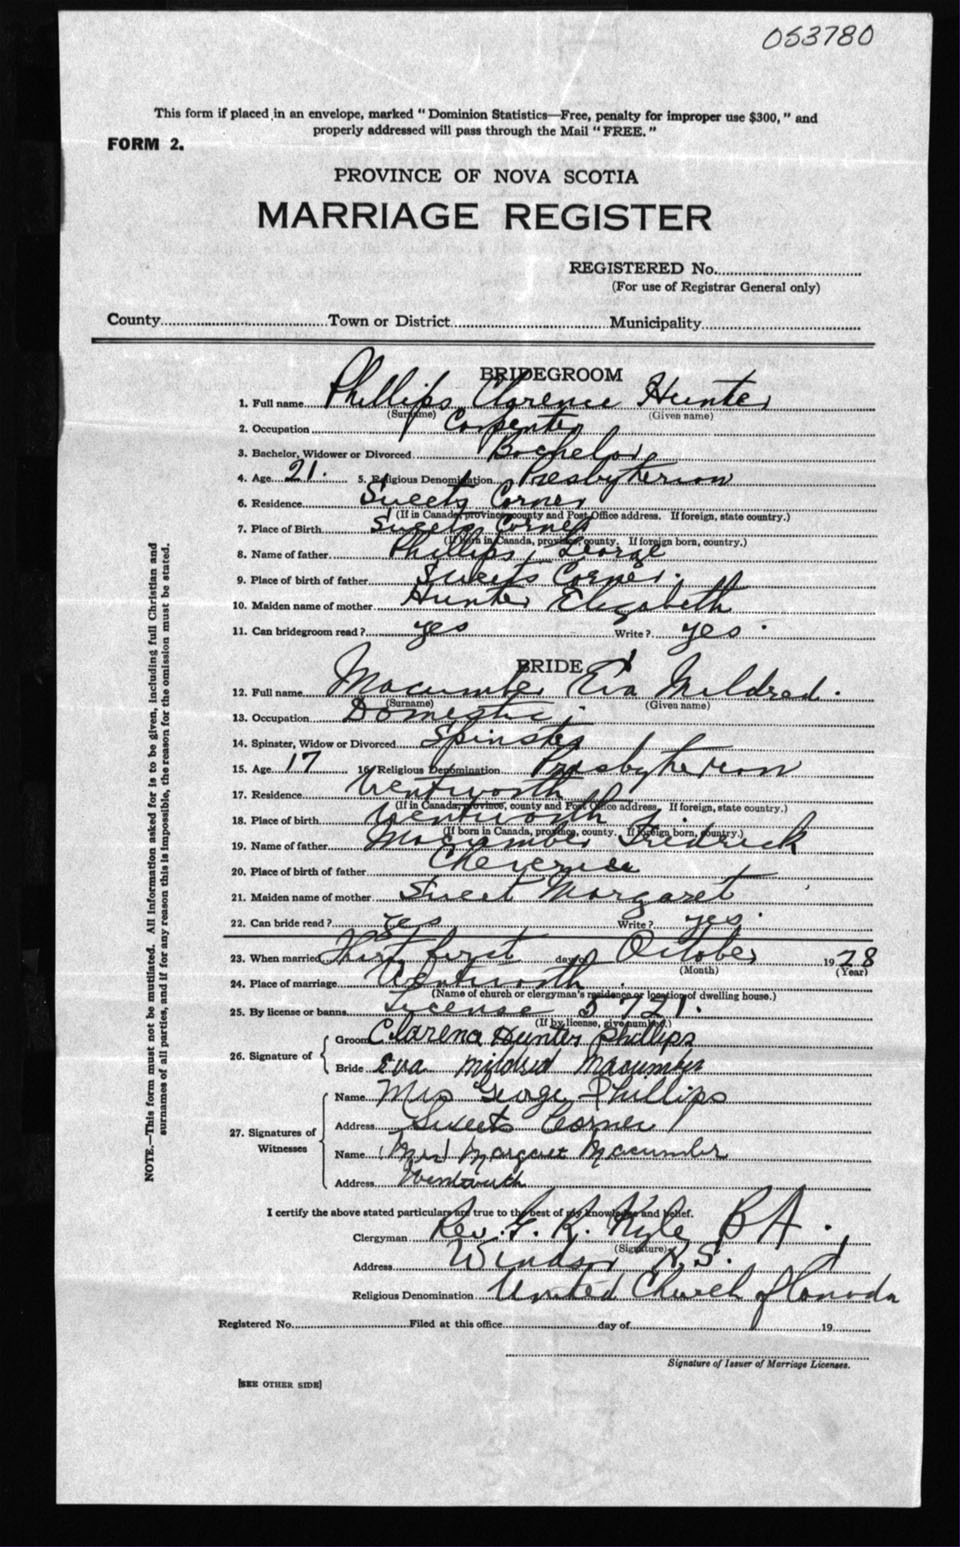 053780
This form if placed in an envelope, marked "Dominion Statistics—Free, penalty for improper use $300," and
properly addressed will pass through the Mail "FREE."
FORM 2.
PROVINCE OF NOVA SCOTIA
MARRIAGE REGISTER
REGISTERED No.
(For use of Registrar General only)
County Town or District Municipality
BRIDEGROOM
1. Full name Phillips Clarence Hunter
(Surname) (Given name)
2. Occupation Carpenter
3. Bachelor, Widower or Divorced Bachelor
4. Age 21. 5. Religious Denomination Presbyterian
6. Residence Sweets Corner
(If in Canada, province, county and Post Office address. If foreign, state country.)
7. Place of Birth Sweets Corner
(If born in Canada, province, county. If foreign born, country.)
8. Name of father Phillips, George
9. Place of birth of father Sweets Corner.
10. Maiden name of mother Hunter Elizabeth
11. Can bridegroom read? yes Write? yes.
BRIDE
12. Full name Macumber Eva Mildred.
(Surname) (Given name)
13. Occupation Domestic.
14. Spinster, Widow or Divorced Spinster
15. Age 17 16. Religious Denomination Presbyterian
17. Residence Wentworth
(If in Canada, province, county and Post Office address. If foreign, state country.)
18. Place of birth Wentworth
(If born in Canada, province, county. If foreign born, country.)
19. Name of father Macumber Fredrick
20. Place of birth of father
21. Maiden name of mother Sweet Margaret
22. Can bride read? yes Write? yes.
23. When married first day of October 1928
(Month) (Year)
24. Place of marriage Wentworth.
(Name of church or clergyman's residence or location of dwelling house.)
25. By license or banns License 5721.
(If by license, give number.)
26. Signature of
Groom Clarence Hunter Phillips
Bride Eva Mildred Macumber
27. Signatures of Witnesses
Name Mrs George Phillips
Address Sweets Corner
Name Mrs Margaret Macumber
Address Wentworth
I certify the above stated particulars are true to the best of my knowledge and belief.
Clergyman Rev. G. R. B A.
(Signature)
Address Windsor N.S.
Religious Denomination United Church of Canada
Registered No. Filed at this office day of 19
Signature of Issuer of Marriage Licenses.
[SEE OTHER SIDE]
NOTE.—This form must not be mutilated. All information asked for is to be given, including full Christian and
surnames of all parties, and if for any reason this is impossible, the reason for the omission must be stated.